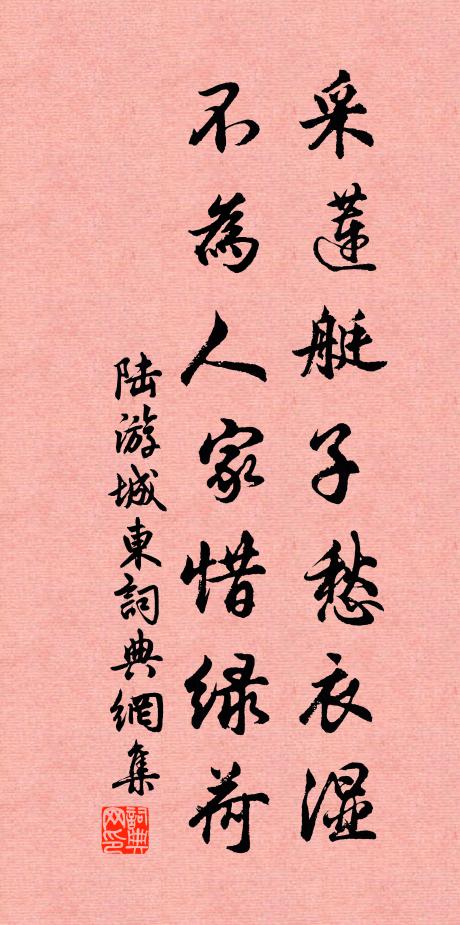 采蓮艇子愁衣湿
不為人家惜緑荷
陆游城東詞典網集
詞典网印